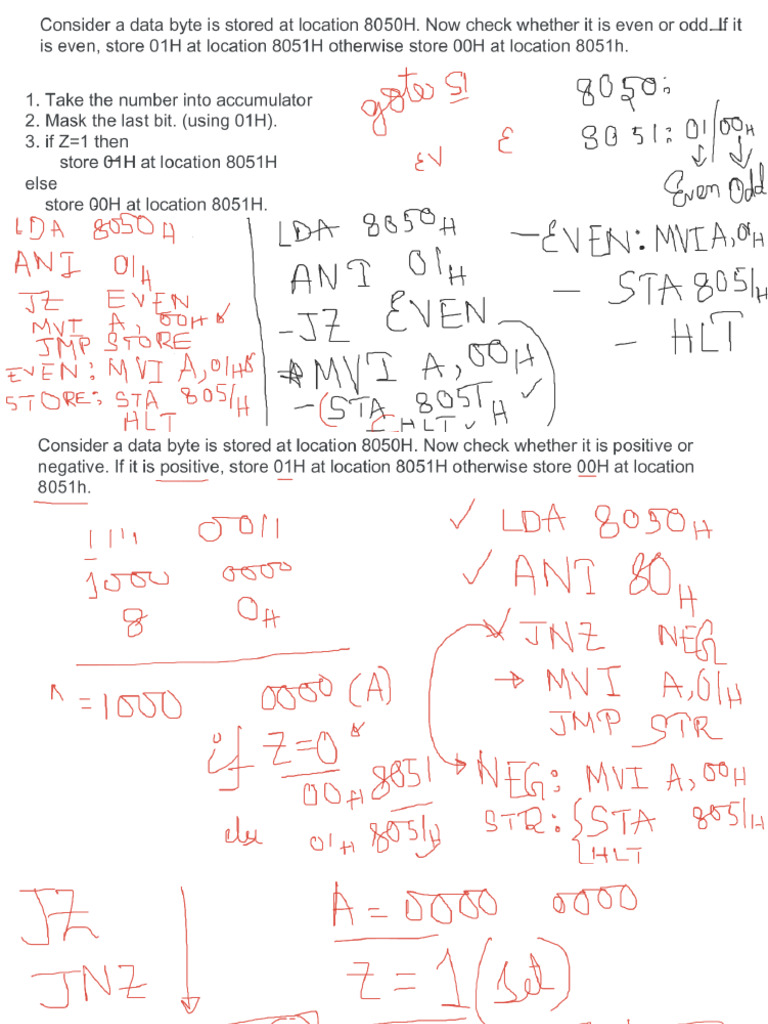 Consider a data byte is stored at location 8050H. Now check whether it is even or odd. If it
is even, store 01H at location 8051H otherwise store 00H at location 8051h.
1. Take the number into accumulator
2. Mask the last bit. (using 01H).
3. if Z=1 then
store 01H at location 8051H
else
store 00H at location 8051H.
goto S1
EV E
8050:
8051: 01/00H
Even Odd
LDA 8050H
ANI 01H
JZ EVEN
MVI A, 00H
JMP STORE
EVEN: MVI A, 01H
STORE: STA 8051H
HLT
LDA 8050H
ANI 01H
- JZ EVEN
MVI A, 00H
- STA 8051H
HLT
- EVEN: MVI A, 01H
- STA 8051H
- HLT
Consider a data byte is stored at location 8050H. Now check whether it is positive or
negative. If it is positive, store 01H at location 8051H otherwise store 00H at location
8051h.
1111 0011
1000 0000
8 0H
= 1000 0000 (A)
if Z=0
00H 8051
else 01H 8051H
LDA 8050H
ANI 80H
JNZ NEG
MVI A, 01H
JMP STR
NEG: MVI A, 00H
STR: STA 8051H
HLT
JZ
JNZ
A = 0000 0000
Z = 1 (set)